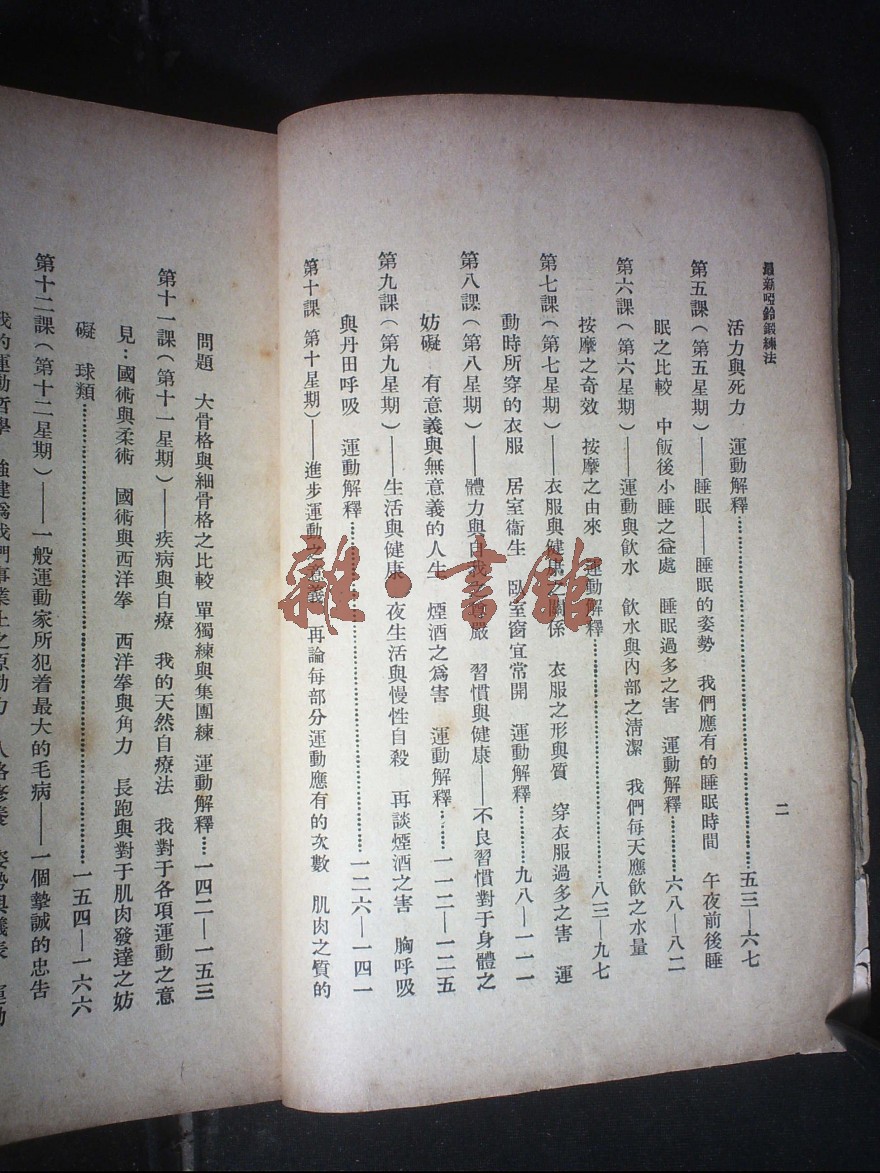 最新啞鈴鍛練法
二
活力與死力　運動解釋…………五三—六七
第五課(第五星期)——睡眠——睡眠的姿勢　我們應有的睡眠時間　午夜前後睡
眠之比較　中飯後小睡之益處　睡眠過多之害　運動解釋…………六八—八二
第六課(第六星期)——運動與飲水　飲水與內部之清潔　我們每天應飲之水量
按摩之奇效　按摩之由來　運動解釋…………八三—九七
第七課(第七星期)——衣服與健康之關係　衣服之形與質　穿衣服過多之害　運
動時所穿的衣服　居室衞生　臥室窗宜常開　運動解釋…………九八—一一一
第八課(第八星期)——體力與自我之尊嚴　習慣與健康——不良習慣對于身體之
妨礙　有意義與無意義的人生　煙酒之爲害　運動解釋……一一二—一二五
第九課(第九星期)——生活與健康　夜生活與慢性自殺　再談煙酒之害　胸呼吸
與丹田呼吸　運動解釋…………一二六—一四一
第十課　第十星期)——進步運動之意義　再論每部分運動應有的次數　肌肉之質的
問題　大骨格與細骨格之比較　單獨練與集團練　運動解釋…一四二—一五三
第十一課(第十一星期)——疾病與自療　我的天然自療法　我對于各項運動之意
見：國術與柔術　國術與西洋拳　西洋拳與角力　長跑與對于肌肉發達之妨
礙　球類…………一五四—一六六
第十二課(第十二星期)——一般運動家所犯着最大的毛病——一個摯誠的忠告
我的運動哲學　強健爲我們事業上之原動力　人格修養　姿勢與儀表　運動
雜·書館